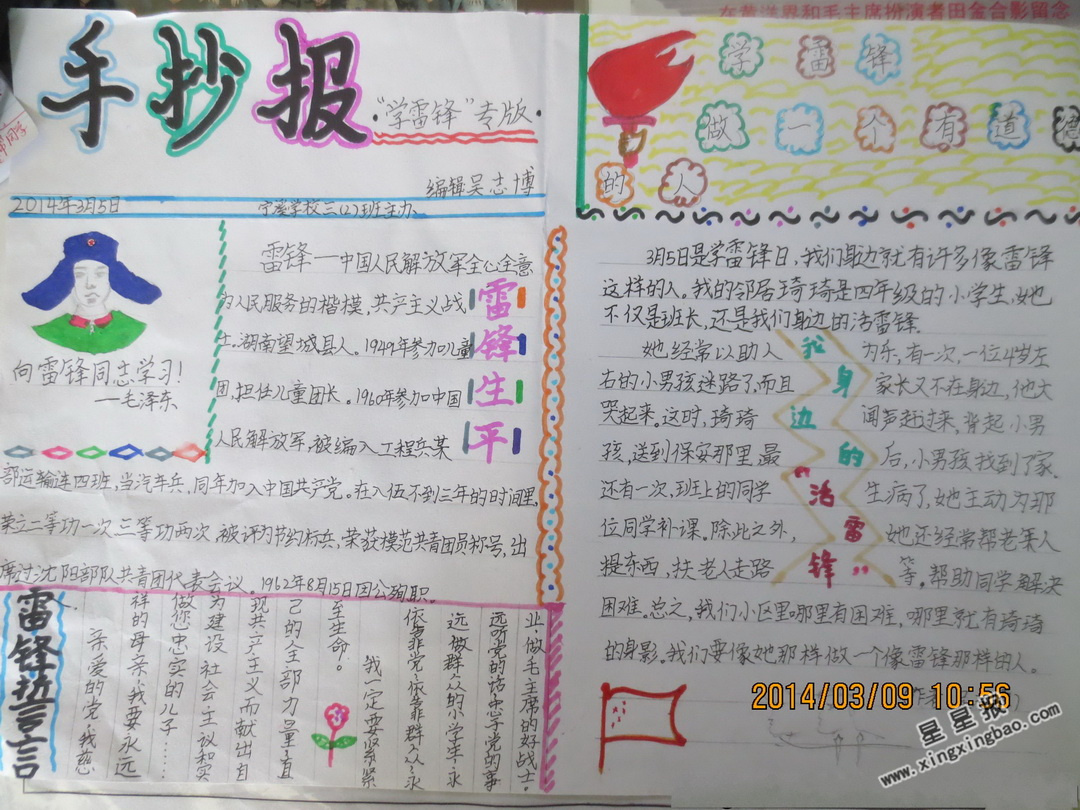 在黄洋界和毛主席扮演者田金合影留念
手抄报
·"学雷锋"专版·
编辑吴志博
2014年3月5日 宁溪学校三(2)班主办
向雷锋同志学习!
——毛泽东
雷锋生平
雷锋——中国人民解放军全心全意
为人民服务的楷模,共产主义战
士.湖南望城县人。1949年参加儿童
团,担任儿童团长。1960年参加中国
人民解放军,被编入工程兵某
部运输连四班,当汽车兵,同年加入中国共产党。在入伍不到三年的时间里,
荣立二等功一次三等功两次,被评为节约标兵,荣获模范共青团员称号,出
席过沈阳部队共青团代表会议。1962年8月15日因公殉职.
雷锋誓言
亲爱的党,我慈
祥的母亲,我要永远
做您忠实的儿子……
为建设社会主议和实
现共产主义而献出自
己的全部力量,直
至生命。
我一定要紧紧
依靠党、依靠群众、永
远做群众的小学生,永
远听党的话,忠于党的事
业,做毛主席的好战士。
学雷锋
做一个有道德
的人
我身边的"活雷锋"
3月5日是学雷锋日,我们身边就有许多像雷锋
这样的人。我的邻居琦琦是四年级的小学生,她
不仅是班长,还是我们身边的活雷锋.
她经常以助人为乐,有一次,一位4岁左
右的小男孩迷路了,而且家长又不在身边,他大
哭起来。这时,琦琦闻声赶过来,背起小男
孩,送到保安那里,最后,小男孩找到了家.
还有一次,班上的同学生病了,她主动为那
位同学补课。除此之外,她还经常帮老人
提东西,扶老人走路等。帮助同学解决
困难。总之,我们小区里哪里有困难,哪里就有琦琦
的身影。我们要像她那样做一个像雷锋那样的人。
2014/03/09 10:56
星星报
www.xingxingbao.com